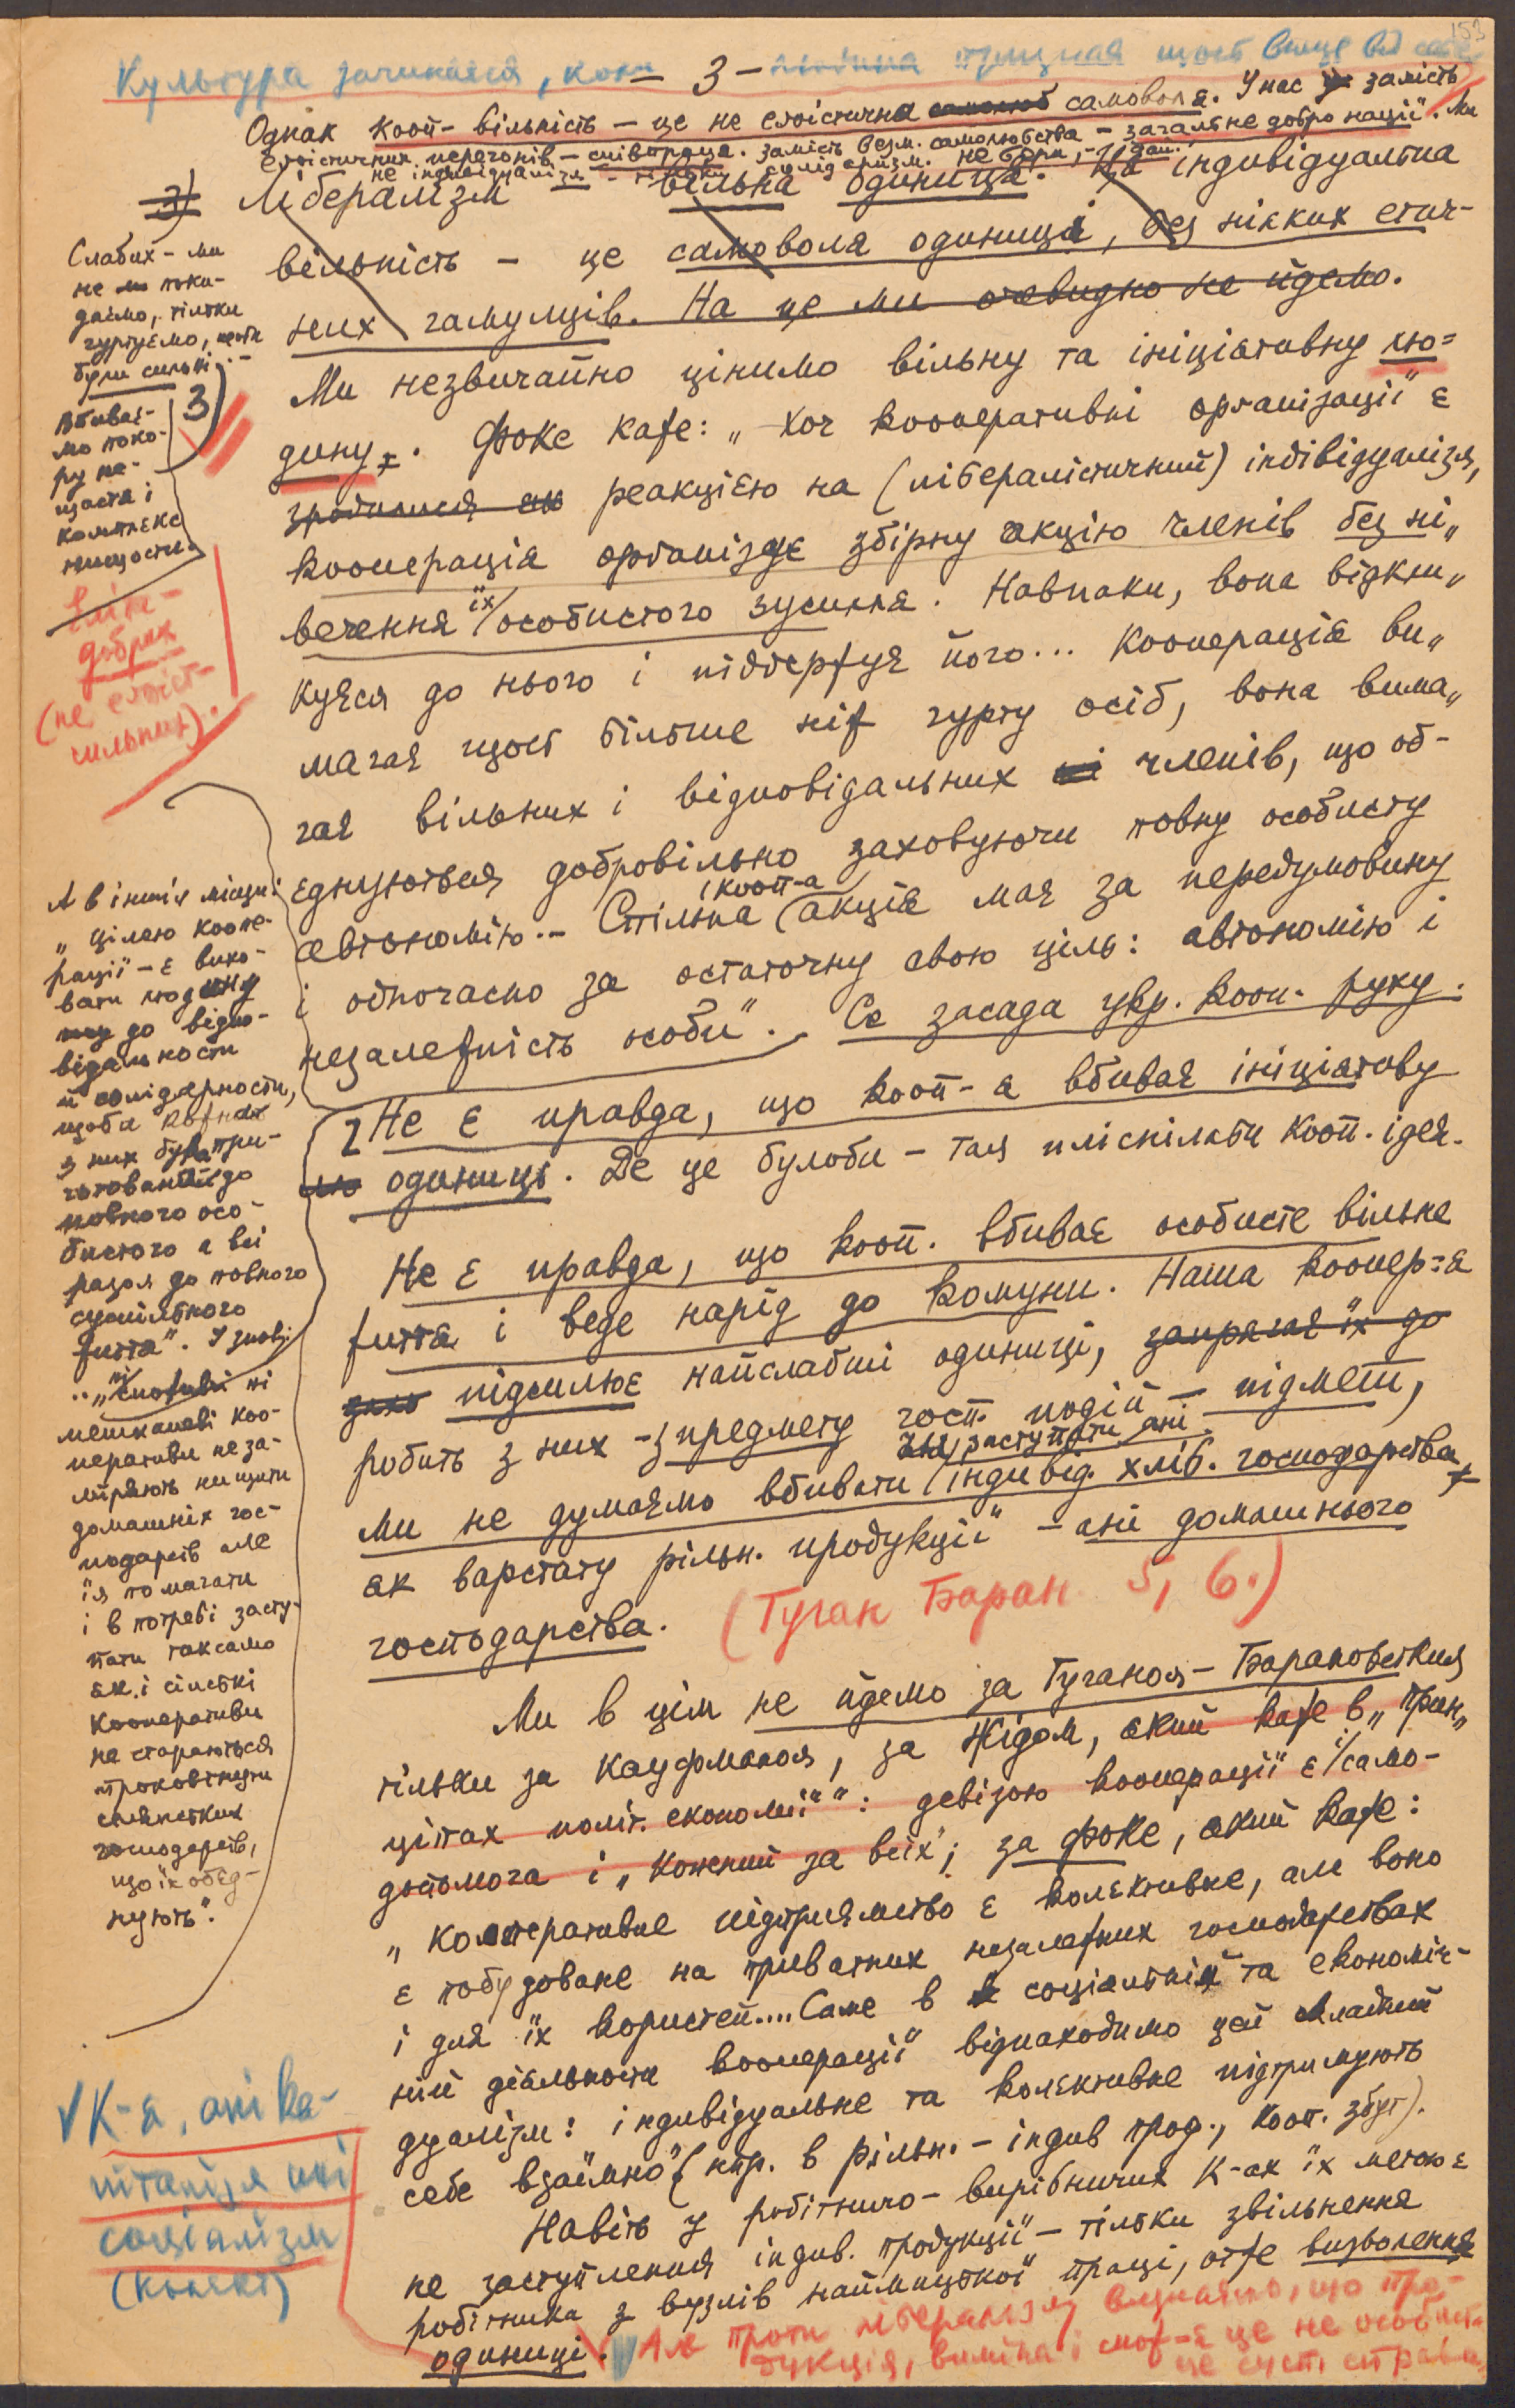 153
Культура зачинаєся, коли людина признає щось вище від себе
- 3 -
Однак кооп- вільність – це не егоістична самоволя. У нас замість
егоістичних перегонів – співпраця. Замість безм. самолюбства – загальне добро нації. Ми
не індивідуалізм – солідаризм. не бери, – дай.
3) Лібералізм – вільна одиниця. Ця індивідуальна
вільність – це самоволя одиниці, без ніяких етич-
них гамульців. На це ми очевидно не йдемо.
Ми незвичайно цінимо вільну та ініціятивну лю=
дину. Фоке каже: „Хоч кооперативні організації є
реакцією на (лібералістичний) індівідуалізм,
кооперація організує збірну акцію членів без ні„
вечення їх особистого зусилля. Навпаки, вона відкли„
куєся до нього і піддержує його... Кооперація ви„
магає щось більше ніж гурту осіб, вона вима„
гає вільних і відповідальних членів, що об-
єднуються добровільно заховуючи повну особисту
автономію.– Спільна (кооп-а) акція має за передумовину
і одночасно за остаточну свою ціль: автономію і
незалежність особи". Се засада укр. кооп. руху.
Не є правда, що кооп-а вбиває ініціятиву
одиниці. Де це булоби – там пліснілаби кооп. ідея.
Не є правда, що кооп. вбиває особисте вільне
життя і веде нарід до комуни. Наша коопер-а
підсилює найслабші одиниці, запрягає їх до
робить з них – з предмету госп. подій – підмет,
Ми не думаємо вбивати, заступати ані індивід. хліб. господарства
як варстату рільн. продукції – ані домашнього
господарства. (Туган Баран 5, 6.)
Ми в цім не йдемо за Туганом-Барановським
тільки за Кауфманом, за Жідом, який каже в „прин„
ціпах політ. економії": девізою кооперації є само-
допомога і „Кожний за всіх"; за Фоке, який каже:
„Кооперативне підприємство є колективне, але воно
є побудоване на приватних незалежних господарствах
і для їх користей.... Саме в соціяльній та економіч-
ній діяльности кооперації віднаходимо цей
дуалізм: індивідуальне та колективне підтримують
себе взаїмно" (нпр. в рільн. – індив прод., кооп. збут).
Навіть у робітничо-вирібничих К-ах їх метою є
не заступлення індив. продукції – тільки звільнення
робітника з вузлів наймицької праці, отже визволення
одиниці. Але проти лібералізму визнаємо, що про-
дукція, виміна і спож-а це не особист-
це сусп. справа
Слабих – ми
не поки-
даємо, тільки
гуртуємо, щоби
були сильні. –
3)
Вбиває-
мо поко-
ру не-
щастя і
комплекс
нищости.
добрих
(не егоіст-
сильних).
А в іншім місци:
„Цілею коопе-
рації – є вихо-
вати людину
до відпо-
відальности
й солідарности,
щоби кожна
з них була при-
готована до
повного осо-
бистого а всі
разом до повного
суспільного
життя". І знов:
.. „ні
споживчі ні
мешканеві коо-
перативи не за-
міряють нищити
домашніх гос-
подарств але
їм помагати
і в потребі засту-
пати так само
як і сільські
кооперативи
не стараються
проковтнути
селянських
господарств,
що їх обєд-
нують".
√ К-я, ані ка-
піталізм ані
соціялізм
(колект)